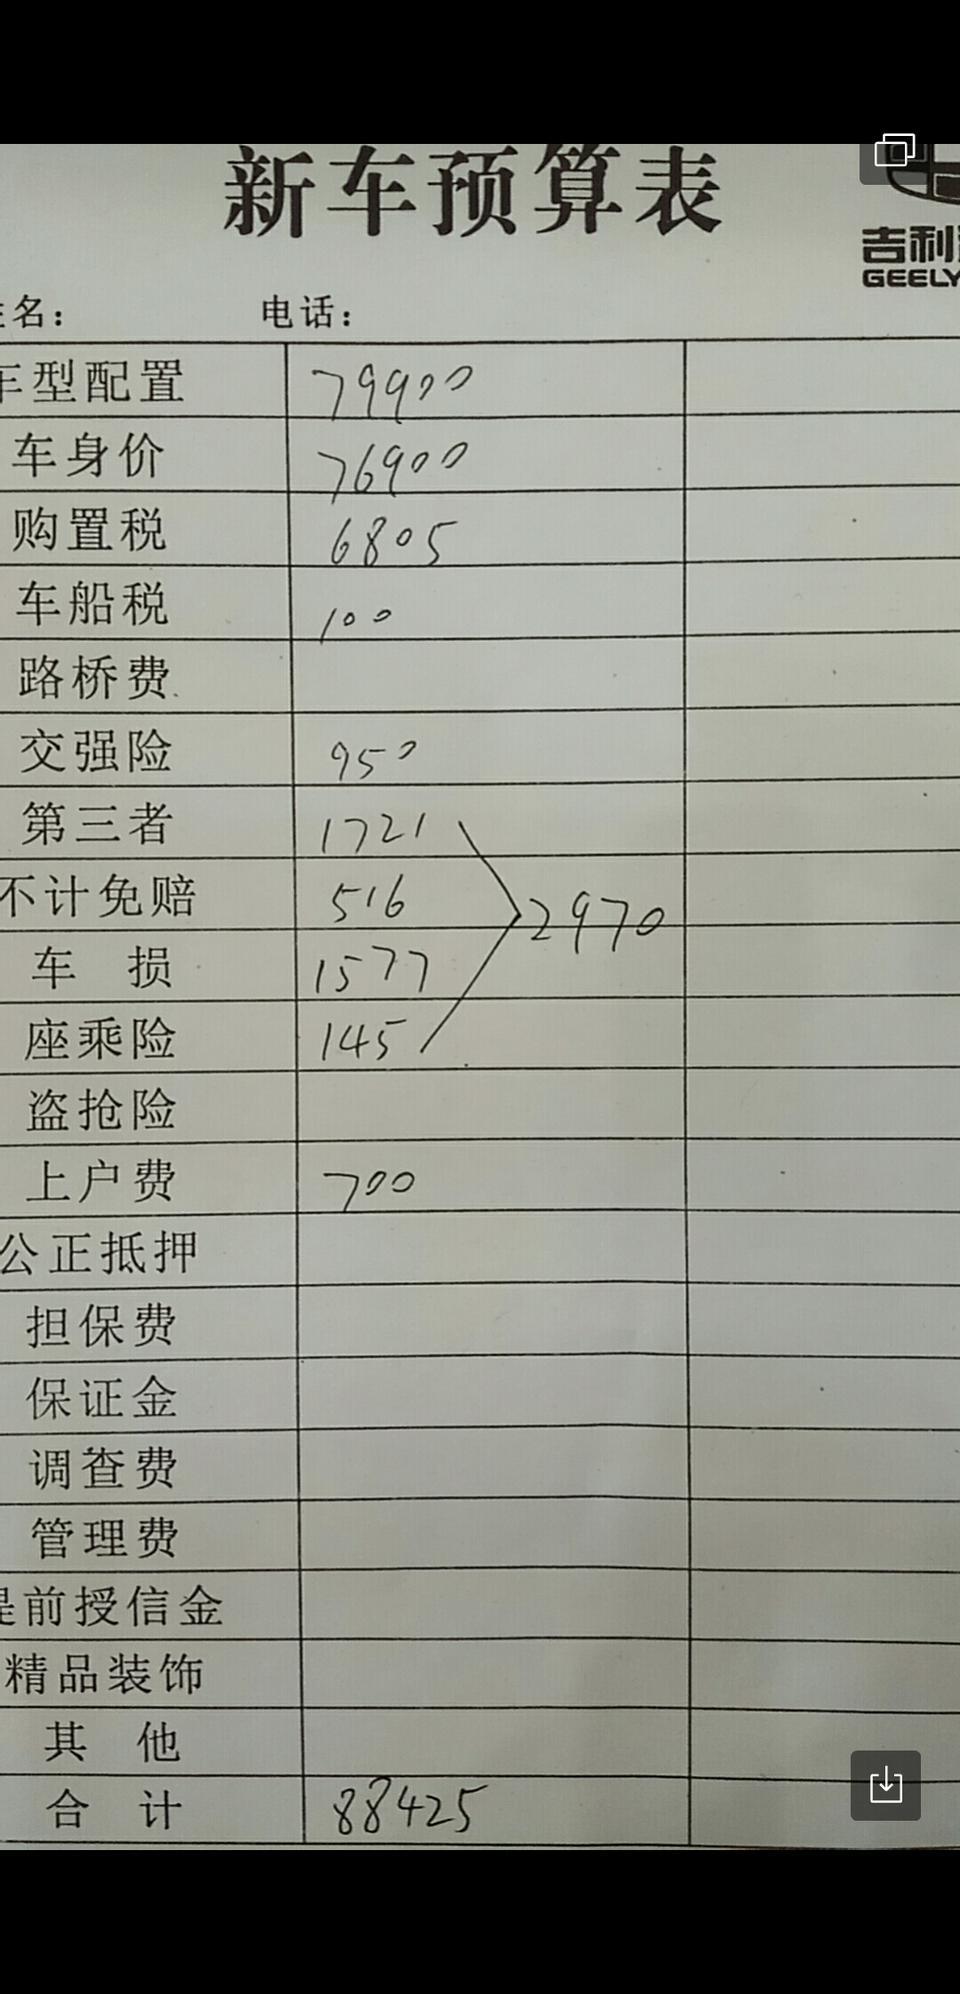 新车预算表
吉利
GEELY
名： 电话：
车型配置 79900
车身价 76900
购置税 6805
车船税 100
路桥费
交强险 950
第三者 1721
不计免赔 516
2970
车 损 1577
座乘险 145
盗抢险
上户费 700
公正抵押
担保费
保证金
调查费
管理费
提前授信金
精品装饰
其 他
合 计 88425